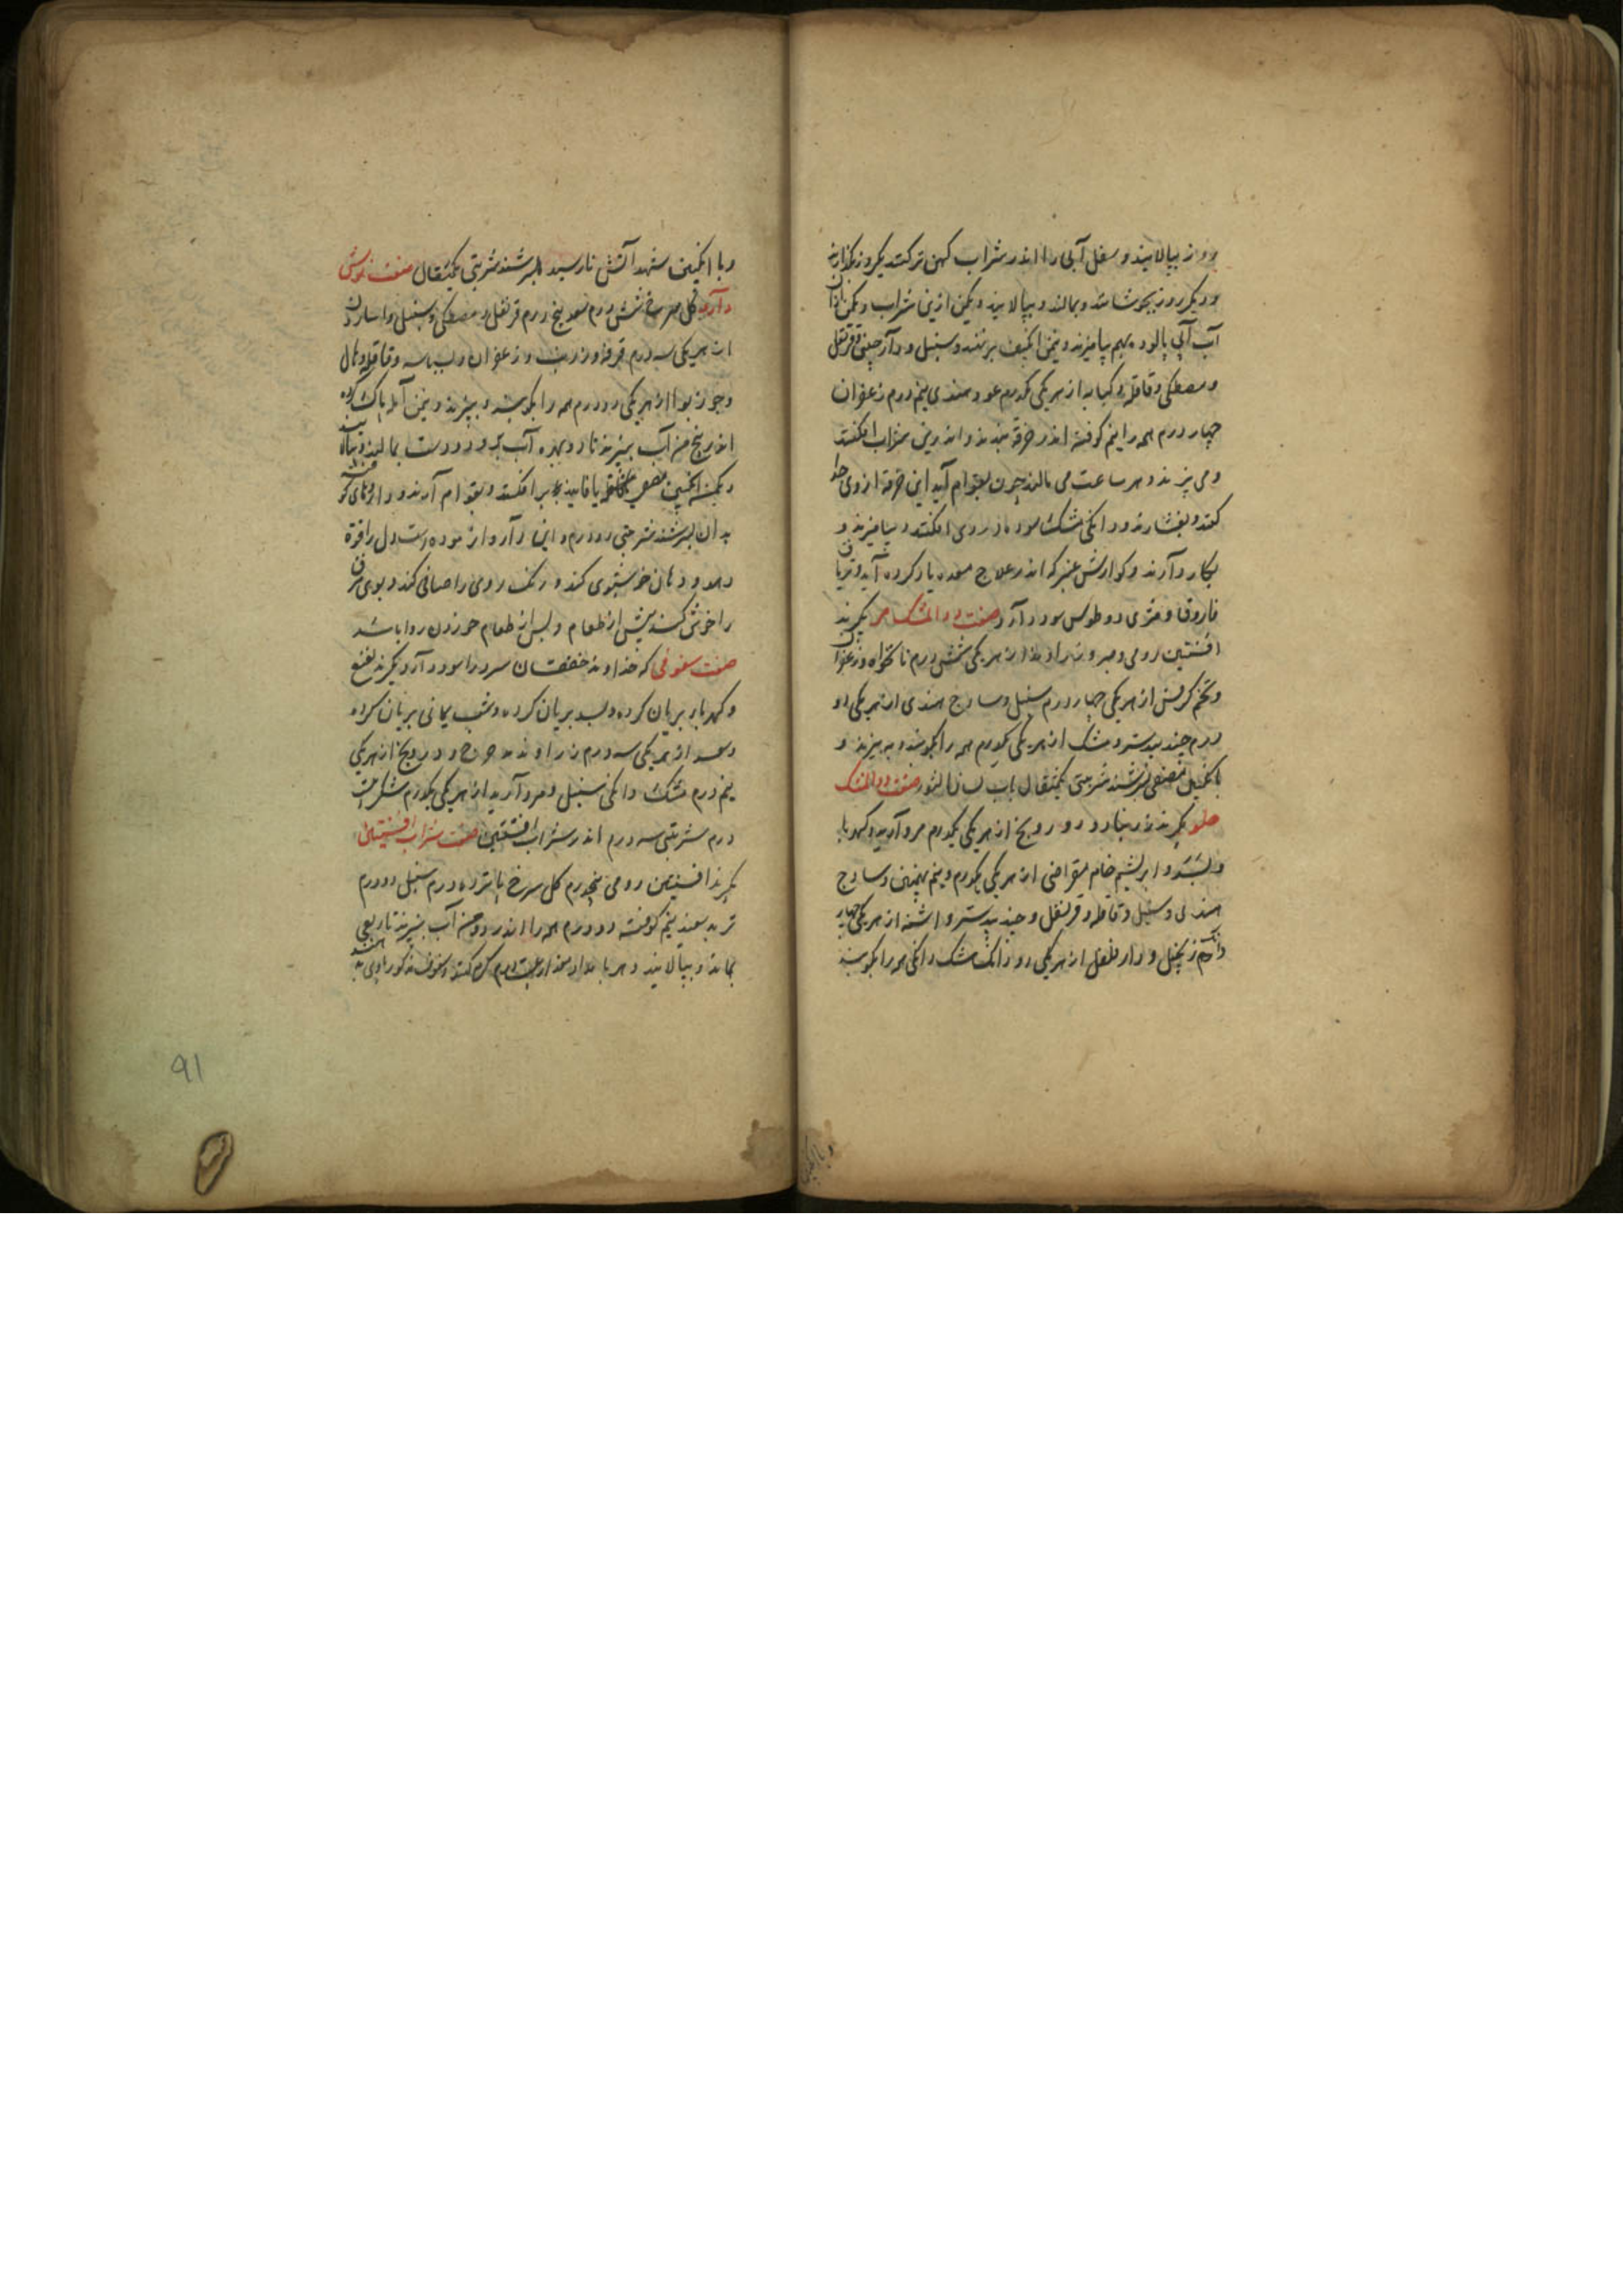 بپالایند و سفل آبی را اندر شراب کهن تر کنند یکروز بگذارند
و دیگر روز بجوشانند و بمالند و بپالایند و یکمن ازین شراب و یکمن ازان
آب آبی پالوده بهم بیامیزند و نیمن انگبین برنهند و سنبل و دارچینی و قرنفل
و مصطکی و قاقله و کبابه از هر یکی یکدرم عود هندی نیم درم زعفران
چهار درم همه را نیم کوفته اندر خرقه بندند و اندرین شراب افکنند
و می پزند و هر ساعت می مالند چون بقوام آید این خرقه از وی جدا
کنند و بفشارند و دانگی مشک اندر وی افکنند و بیامیزند و
بکار دارند و کوارش عنبر که اندر علاج معده یاد کرده آید و تریاق
فاروق و مثرودیطوس سود دارد صفت دواء المشک مر بگیرند
افسنتین رومی و صبر و زراوند از هر یکی شش درم نانخواه و زعفران
و تخم کرفس از هر یکی چهار درم سنبل و سادج هندی از هر یکی دو
درم جندبیدستر و مشک از هر یکی یکدرم همه را بکوبند و ببیزند و
بانگبین مصفی بسرشند شربتی یکمثقال باب لسان الثور صفت دواء المشک
حلو بگیرند زرنباد و درونج از هر یکی یکدرم مروارید و کهربا
و بسد و ابریشم خام مقراضی از هر یکی یکدرم و نیم بهمن و سادج
هندی و سنبل و قاقله و قرنفل و جندبیدستر و اشنه از هر یکی چهار
دانگ زنجبیل و دارفلفل از هر یکی دو دانگ مشک دانگی همه را بکوبند
و با انگبین
و با انگبین شهد آتش نارسیده بسرشند شربتی یکمثقال صفت نوش
دارو گل سرخ شش درم سعد پنج درم قرنفل و مصطکی و سنبل و اسارون
از هر یکی سه درم قرفه و زرنب و زعفران و بسباسه و قاقله و هال
و جوز بوا از هر یکی دو درم همه را بکوبند و ببیزند و یکمن آمله پاک کرده
اندر پنج من آب بپزند تا دو بهره آب برود و بدست بمالند و بپالایند
و یکمن انگبین یا فانیذ بر افکنند و بقوام آرند و داروهای کوفته
بدان بسرشند شربتی دو درم و این دارو آزموده است دل را قوة
دهد و دهان خوشبوی کند و رنگ روی را صافی کند و بوی عرق
را خوش کند پیش از طعام و پس از طعام خوردن روا باشد
صفت سفوفی که خداوند خفقان سرد را سود دارد بگیرند نعنع
و کهربا بریان کرده و بسد بریان کرده و شب یمانی بریان کرده
و سعد از هر یکی سه درم زراوند مدحرج و درونج از هر یکی
نیم درم مشک دانگی سنبل و مروارید از هر یکی یکدرم شکر
درم شربتی سه درم اندر شراب افسنتین صفت شراب افسنتین
بگیرند افسنتین رومی پنجدرم گل سرخ پانزده درم سنبل دو درم
تربد سفید نیم کوفته دو درم همه را اندر دو من آب بپزند تا ربعی
بماند و بپالایند و هر بامداد مقدار بیست درم گرم کنند و سفوف مذکور با وی
۹۱